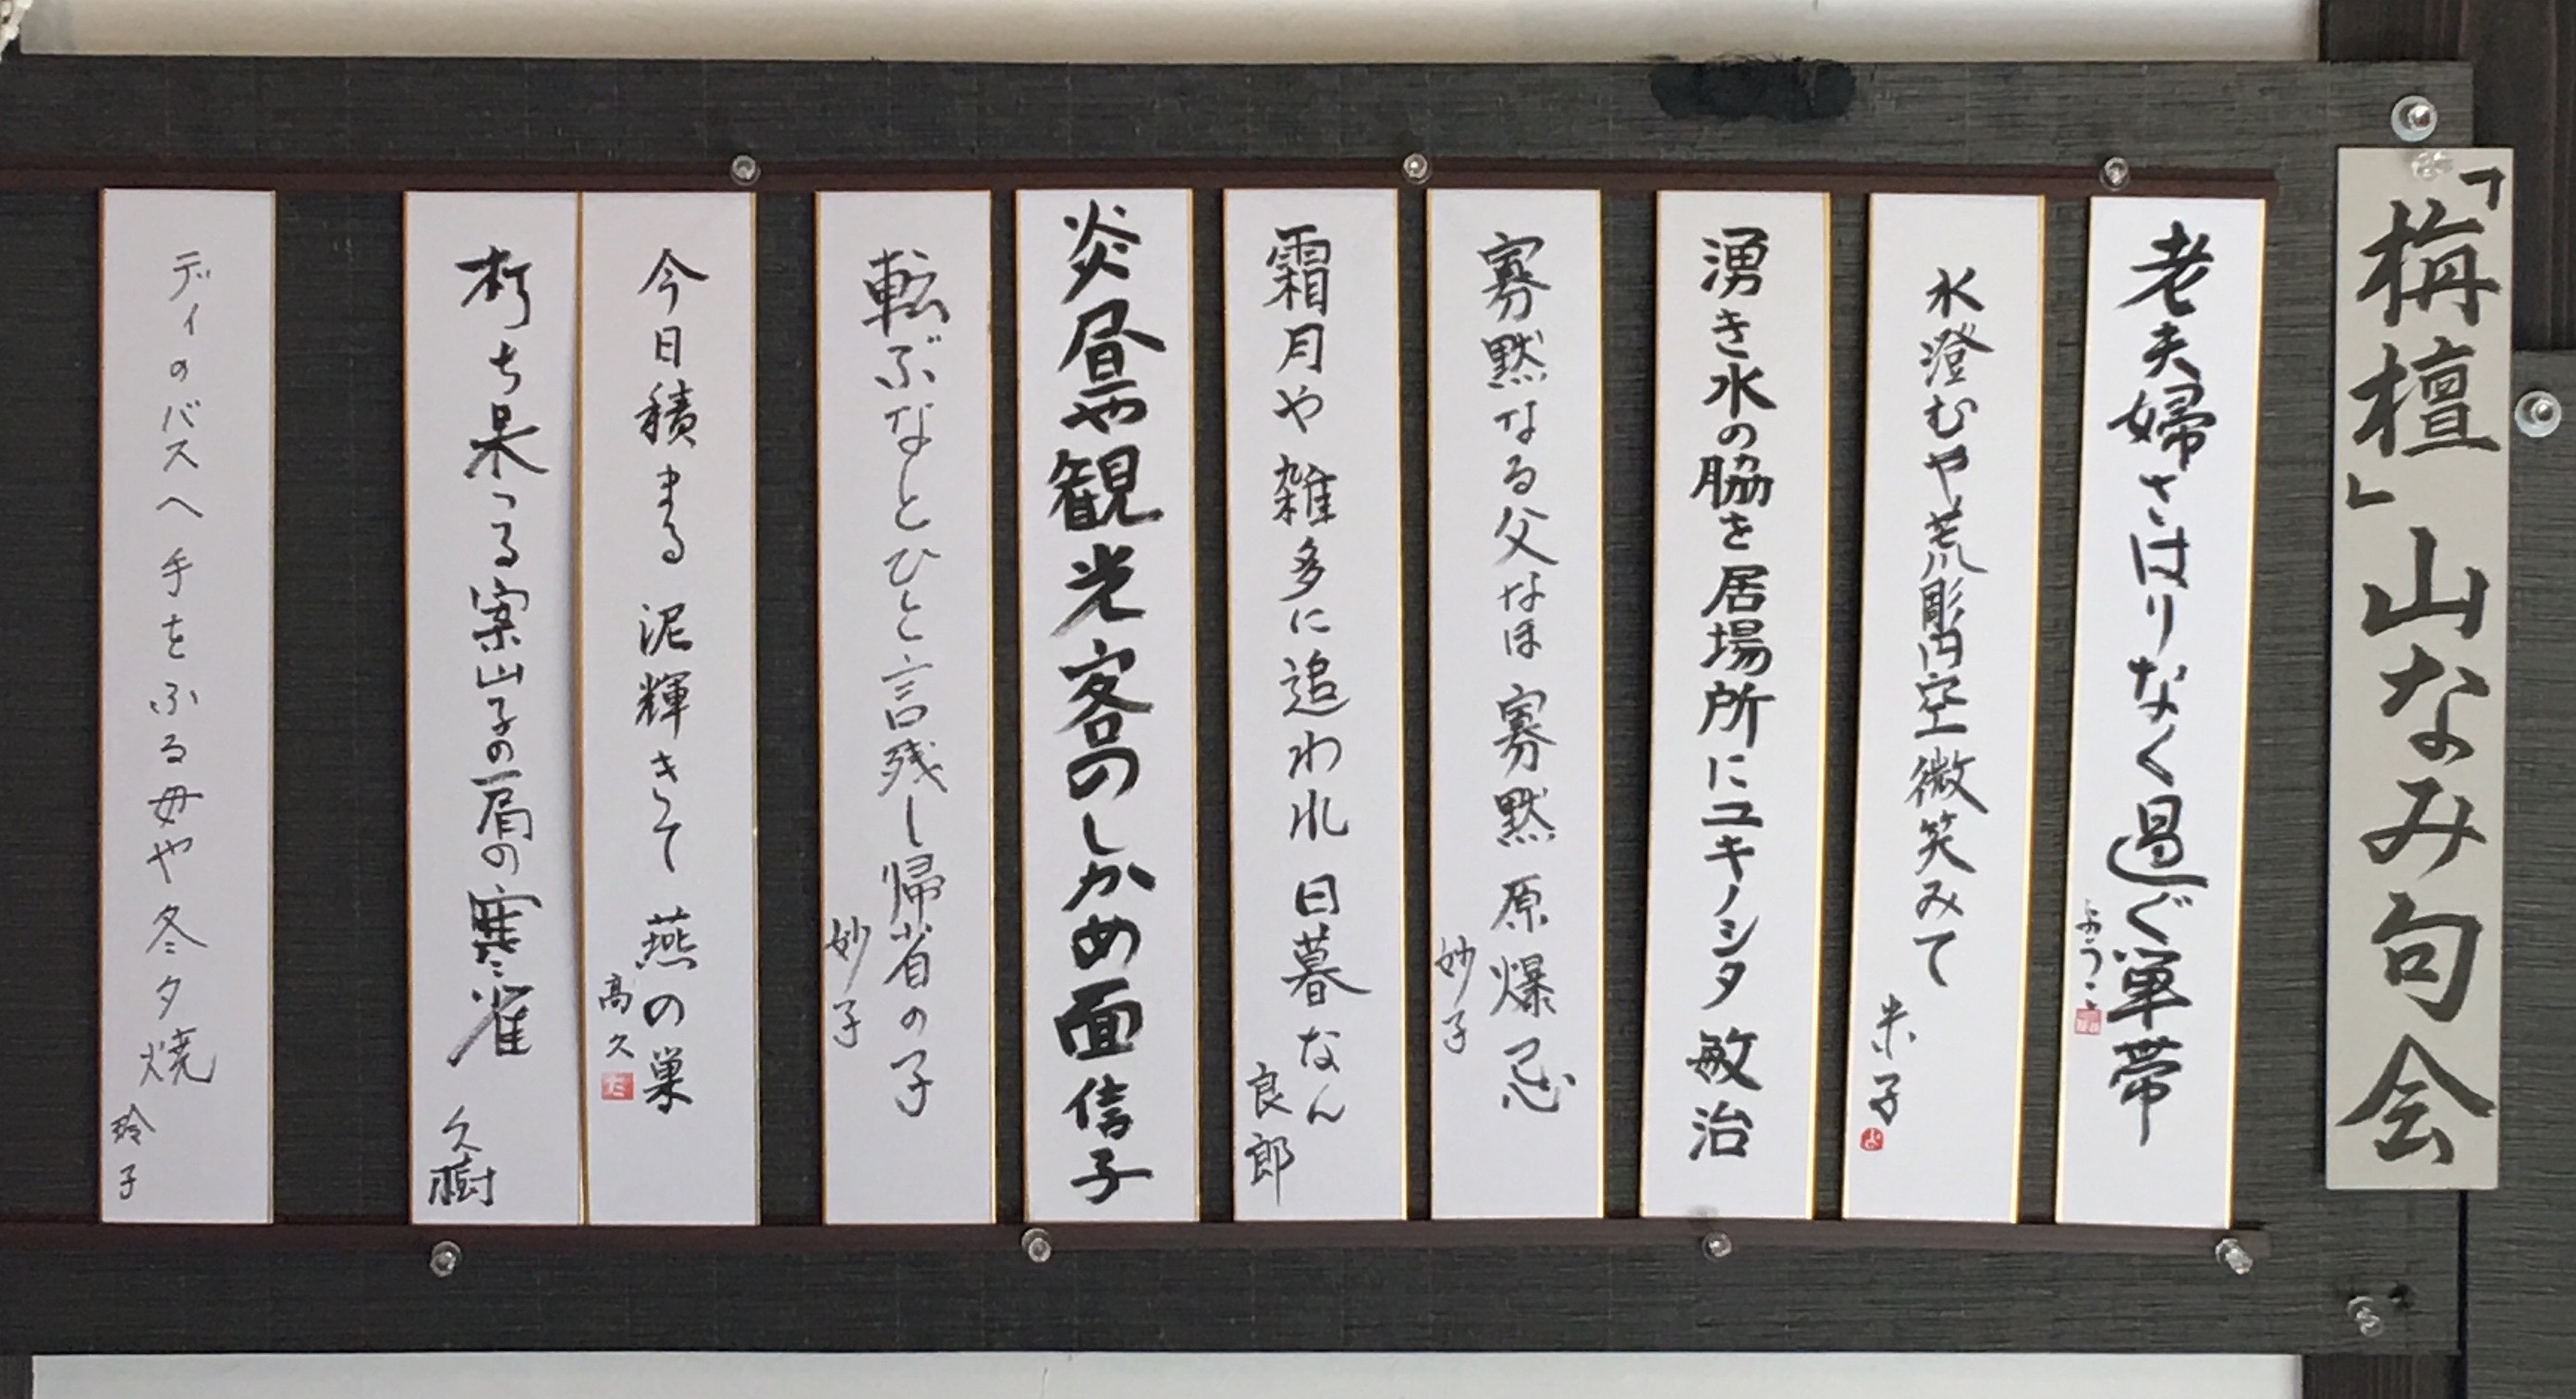 「栴檀」山なみ句会
老夫婦さはりなく過ぐ単帯
ようこ
水澄むや荒彫円空微笑みて
子
湧き水の脇を居場所にユキノシタ 敏治
寡黙なる父なほ寡黙原爆忌
妙子
霜月や雑多に追われ日暮なん
良郎
炎昼や観光客のしかめ面 信子
転ぶなとひと言残し帰省の子
妙子
今日積まる泥輝きて燕の巣
高久
朽ち果つる案山子の肩の寒雀
久樹
ディのバスへ手をふる母や冬夕焼
玲子